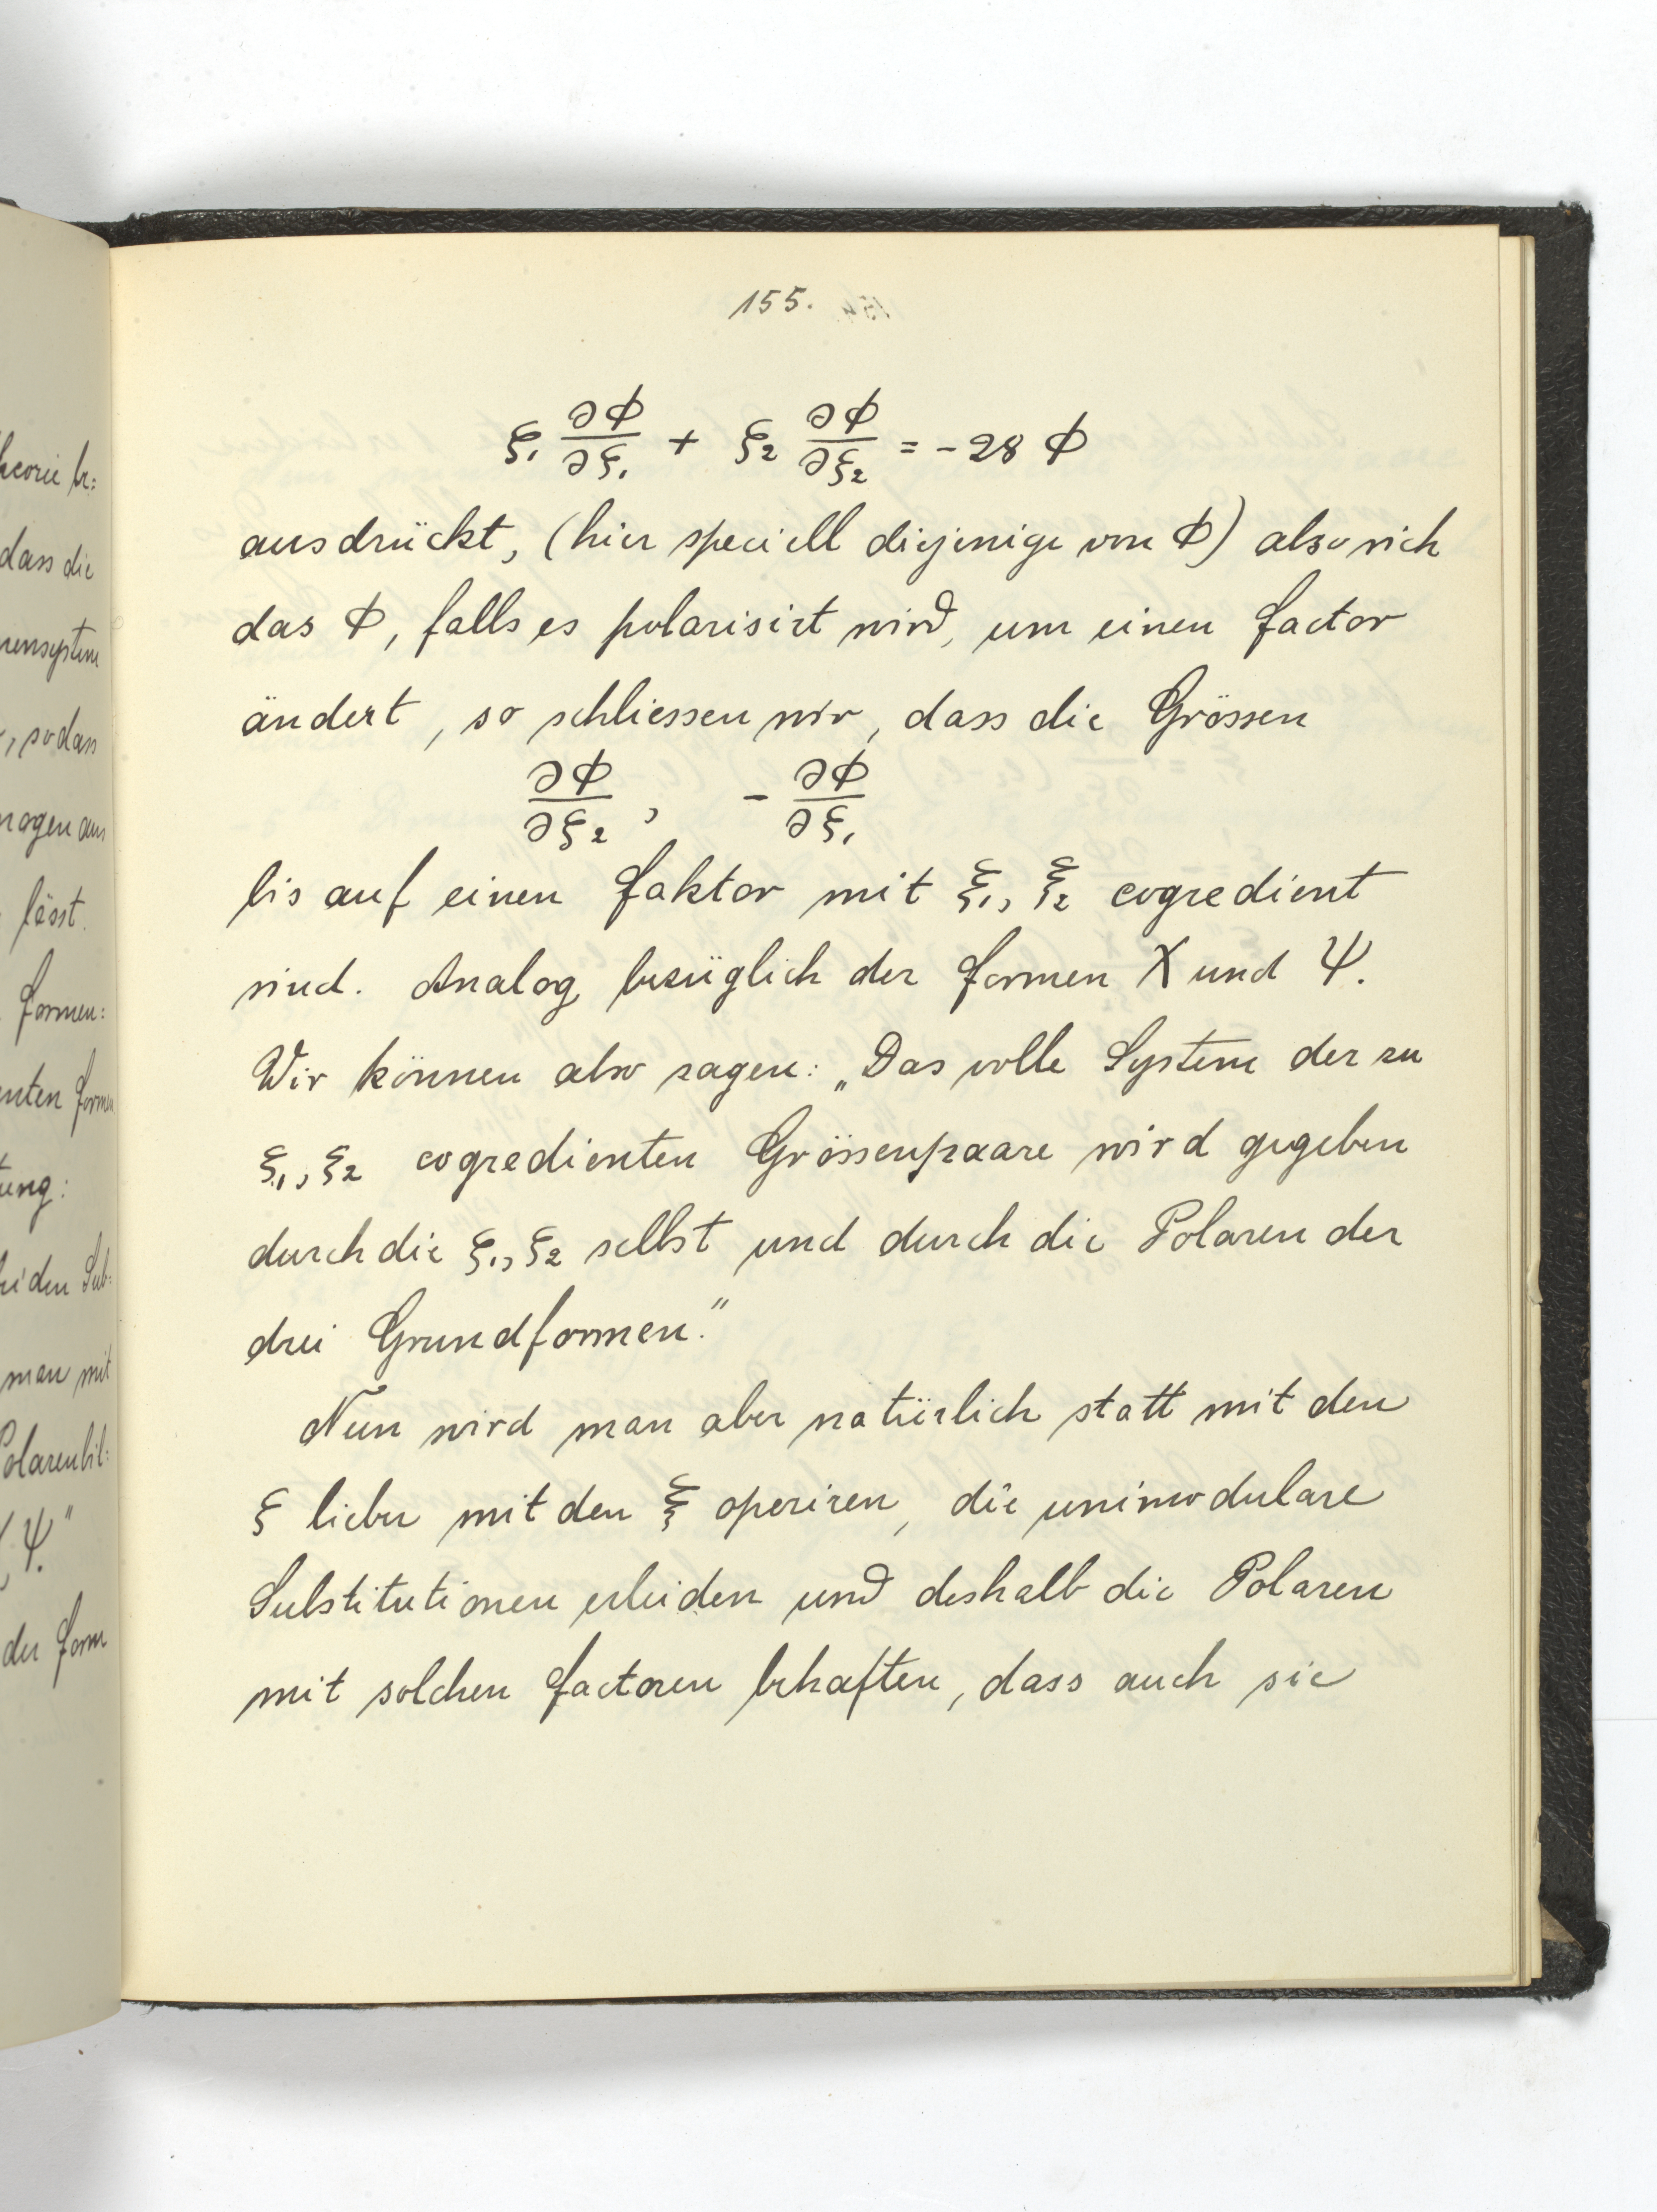 heorie be=
dass die
rensystem
, sodass
lässt.
Formen=
enten Formen
tung:
bei den Sub=
man mit
Polarenbil=
Ψ."
der Form
155.
ξ₁ ∂Φ/∂ξ₁ + ξ₂ ∂Φ/∂ξ₂ = -28 Φ
ausdrückt, (hier speciell diejenige von Φ) also sich
das Φ, falls es polarisirt wird, um einen Factor
ändert, so schliessen wir, dass die Grössen
∂Φ/∂ξ₂, - ∂Φ/∂ξ₁
bis auf einen Faktor mit ξ₁, ξ₂ cogredient
sind. Analog bezüglich der Formen X und Ψ.
Wir können also sagen: „Das volle System der zu
ξ₁, ξ₂ cogredienten Grössenpaare wird gegeben
durch die ξ₁, ξ₂ selbst und durch die Polaren der
drei Grundformen."
Nun wird man aber natürlich statt mit den
ξ lieber mit den Ξ operiren, die unimodulare
Substitutionen erleiden und deshalb die Polaren
mit solchen Factoren behaften, dass auch sie